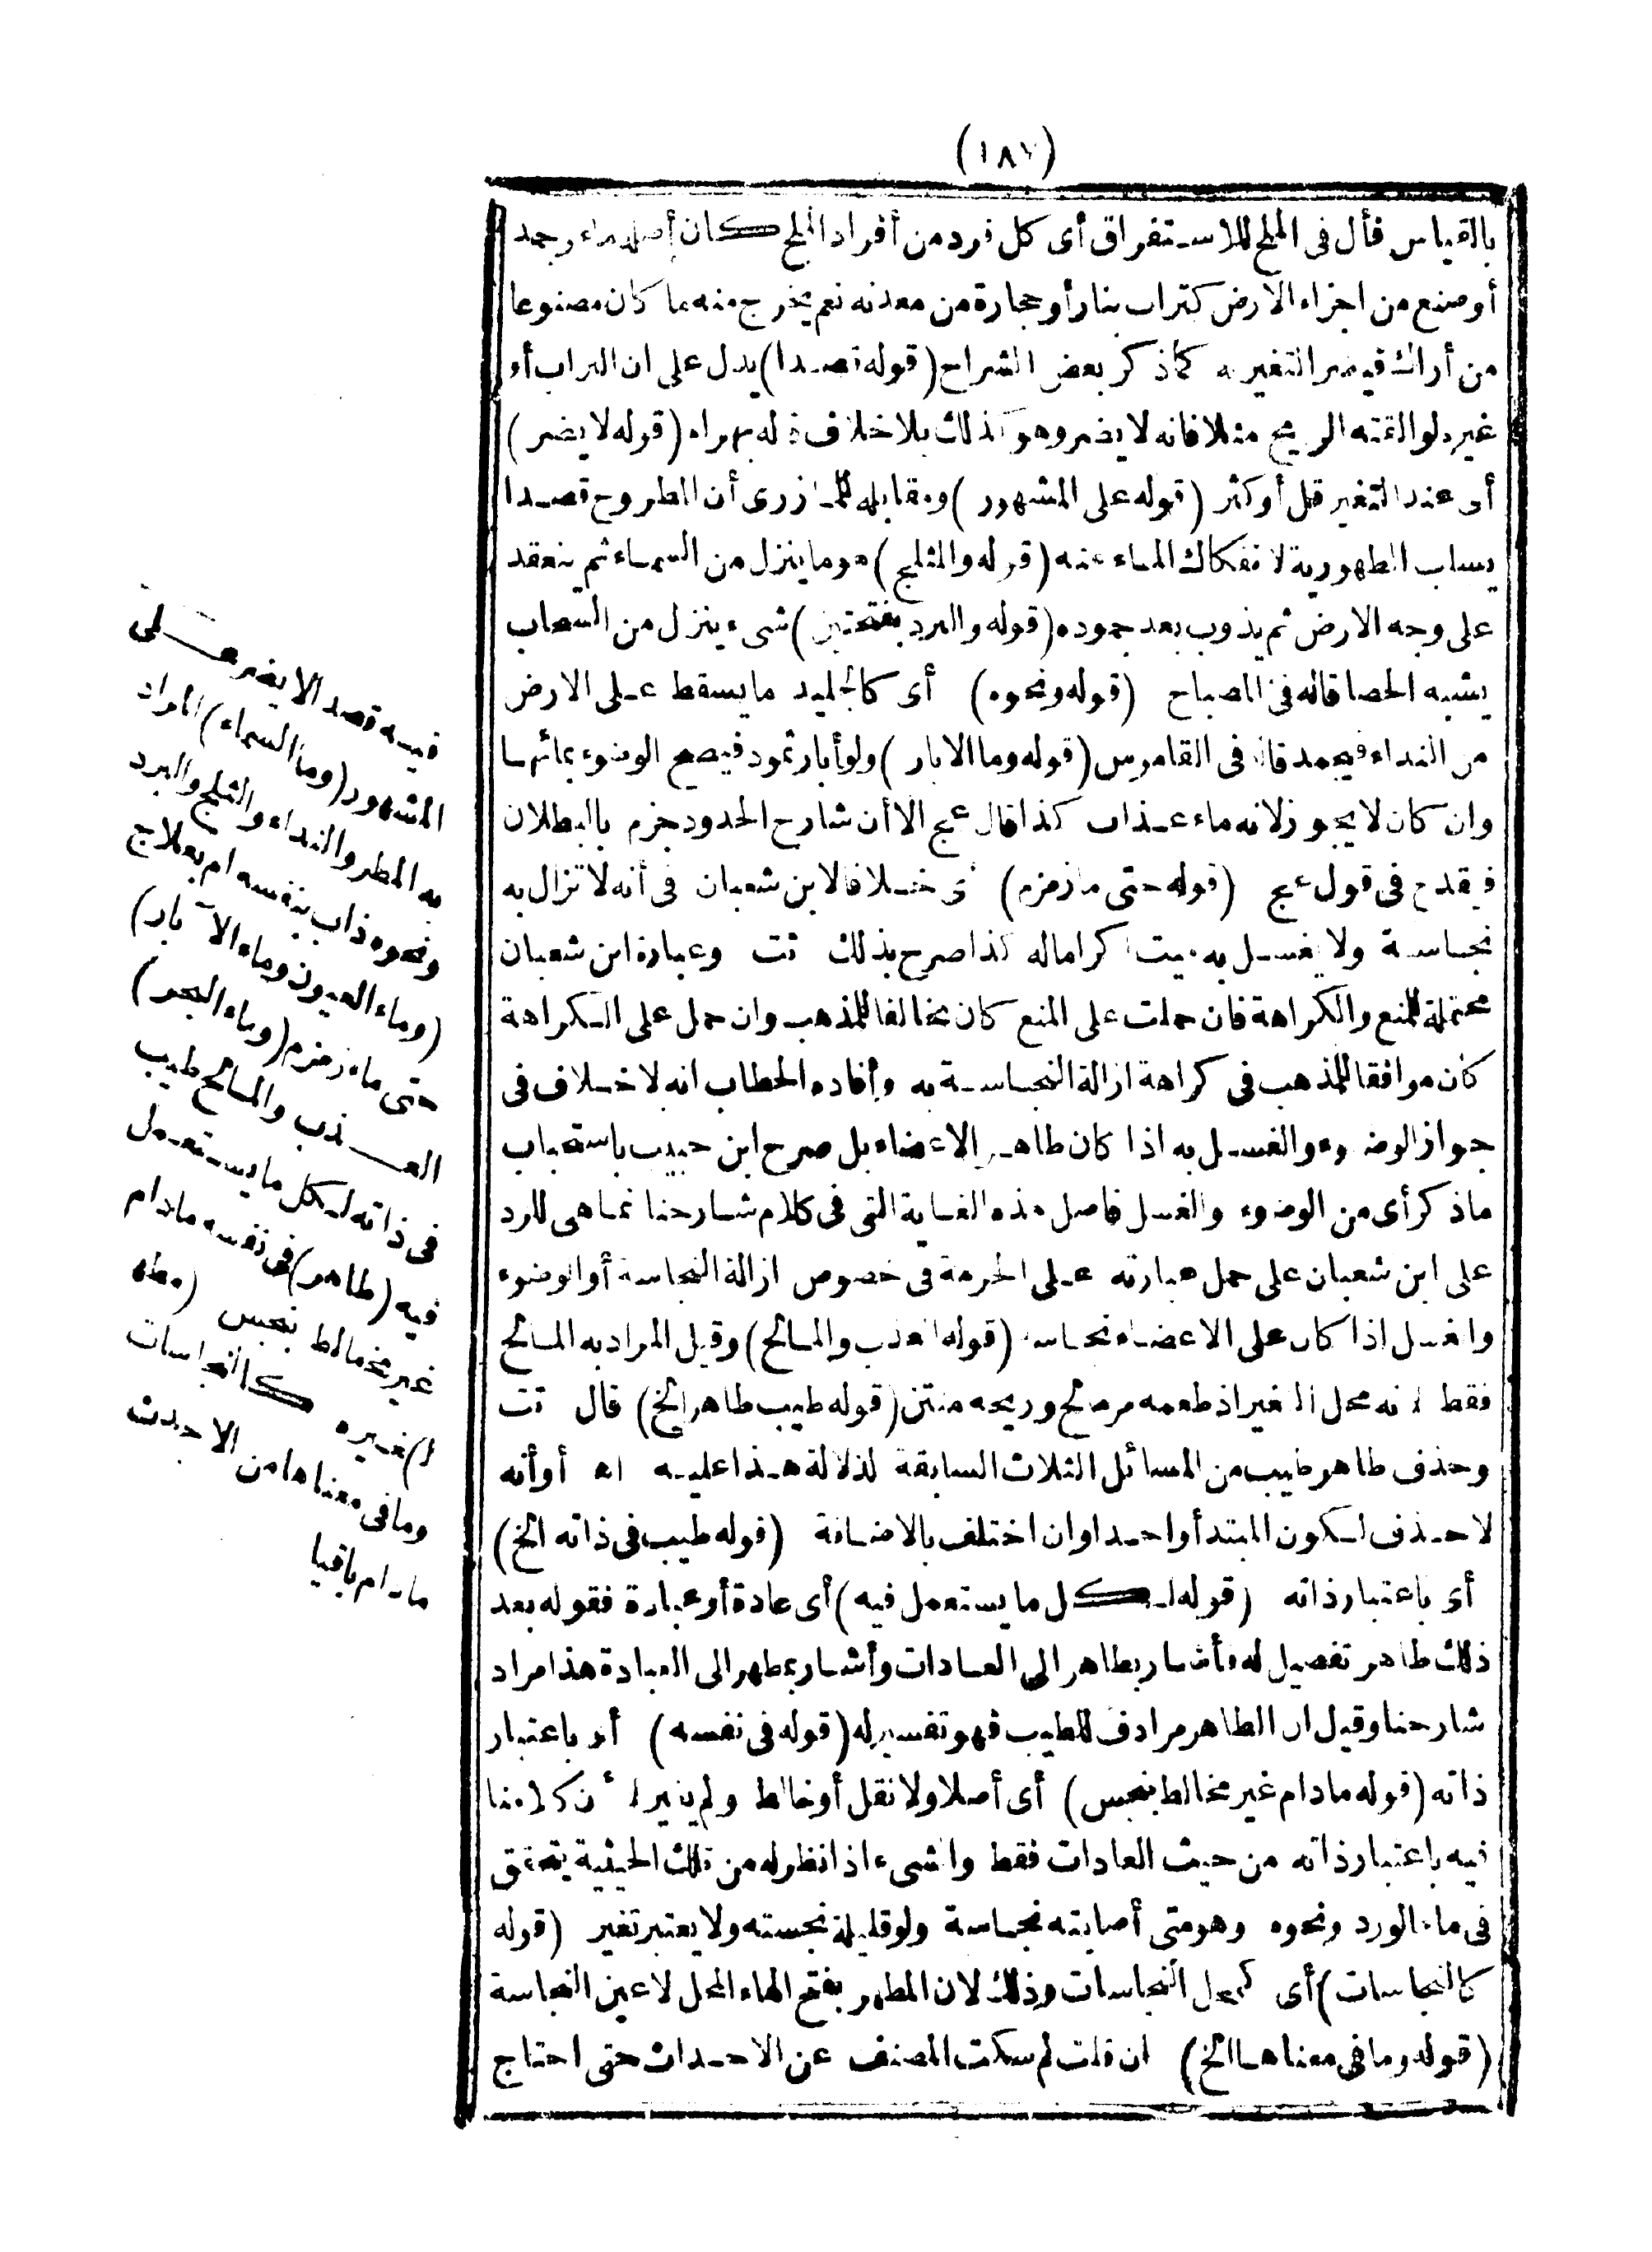 (١٨٧)
بالقياس فأل فى الملح للاستغراق أى كل فرد من أفراد الملح كان أصله ماء وجمد
أو صنع من اجزاء الارض كتراب بنار أو حجارة من معدنه نعم يخرج منه ما كان مصنوعا
من أراك فيضر التغير به كما ذكر بعض الشراح (قوله قصدا) يدل على ان التراب أو
غيره لو ألقته الريح مثلا فانه لا يضر وهو كذلك بلا خلاف قاله بهرام (قوله لا يضر)
أى عند التغير قل أو كثر (قوله على المشهور) ومقابله للمازرى أن المطروح قصدا
يسلب الطهورية لانفكاك الماء عنه (قوله والثلج) هو ما ينزل من السماء ثم ينعقد
على وجه الارض ثم يذوب بعد جموده (قوله والبرد بفتحتين) شىء ينزل من السحاب
يشبه الحصا قاله فى المصباح (قوله ونحوه) أى كالجليد ما يسقط على الارض
من النداء فيجمد قاله فى القاموس (قوله وما الابار) ولو أبار ثمود فيصح الوضوء بمائها
وان كان لا يجوز لانه ماء عذاب كذا قال عج الا أن شارح الحدود جزم بالبطلان
فيقدح فى قول عج (قوله حتى ما زمزم) أى خلافا لابن شعبان فى أنه لا تزال به
نجاسة ولا يغسل به ميت اكراما له كذا صرح بذلك تت وعبارة ابن شعبان
محتملة للمنع والكراهة فان حملت على المنع كان مخالفا للمذهب وان حمل على الكراهة
كان موافقا للمذهب فى كراهة ازالة النجاسة به وأفاده الحطاب انه لا خلاف فى
جواز الوضوء والغسل به اذا كان طاهر الاعضاء بل صرح ابن حبيب باستحباب
ما ذكر أى من الوضوء والغسل فاصل هذه الغاية التى فى كلام شارحنا انما هى للرد
على ابن شعبان على حمل عبارته على الحرمة فى خصوص ازالة النجاسة أو الوضوء
والغسل اذا كان على الاعضاء نجاسة (قوله العذب والمالح) وقيل المراد به المالح
فقط لانه محل التغير اذ طعمه مر مالح وريحه منتن (قوله طيب طاهر الخ) قال تت
وحذف طاهر طيب من المسائل الثلاث السابقة لدلالة هذا عليه اه أو أنه
لا حذف لكون المبتدأ واحدا وان اختلف بالاضافة (قوله طيب فى ذاته الخ)
أى باعتبار ذاته (قوله لكل ما يستعمل فيه) أى عادة أو عبادة فقوله بعد
ذلك طاهر تفصيل له فأشار بطاهر الى العادات وأشار بمطهر الى العبادة هذا مراد
شارحنا وقيل ان الطاهر مرادف للطيب فهو تفسير له (قوله فى نفسه) أى باعتبار
ذاته (قوله مادام غير مخالط بنجس) أى أصلا ولا نقل أو خالط ولم يغير لأن كلامنا
فيه باعتبار ذاته من حيث العادات فقط والشىء اذا نظر له من تلك الحيثية يتحقق
فى ماء الورد ونحوه وهو متى أصابته نجاسة ولو قليلة نجسته ولا يعتبر تغير (قوله
كالنجاسات) أى كمحل النجاسات وذلك لان المطهر بفتح الهاء المحل لا عين النجاسة
(قوله وما فى معناها الخ) ان قلت لم سكت المصنف عن الاحداث حتى احتاج
فيه قصد الا يضر على
المشهور (وما السماء) المراد
به المطر والنداء والثلج والبرد
ونحوه ذاب بنفسه ام بعلاج
(وماء العيون وماء الآبار)
حتى ماء زمزم (وماء البحر)
العذب والمالح طيب
فى ذاته لكل ما يستعمل
فيه (طاهر) فى نفسه مادام
غير مخالط بنجس (مطه
ر) لغيره كالنجاسات
وما فى معناها من الاحداث
مادام باقيا